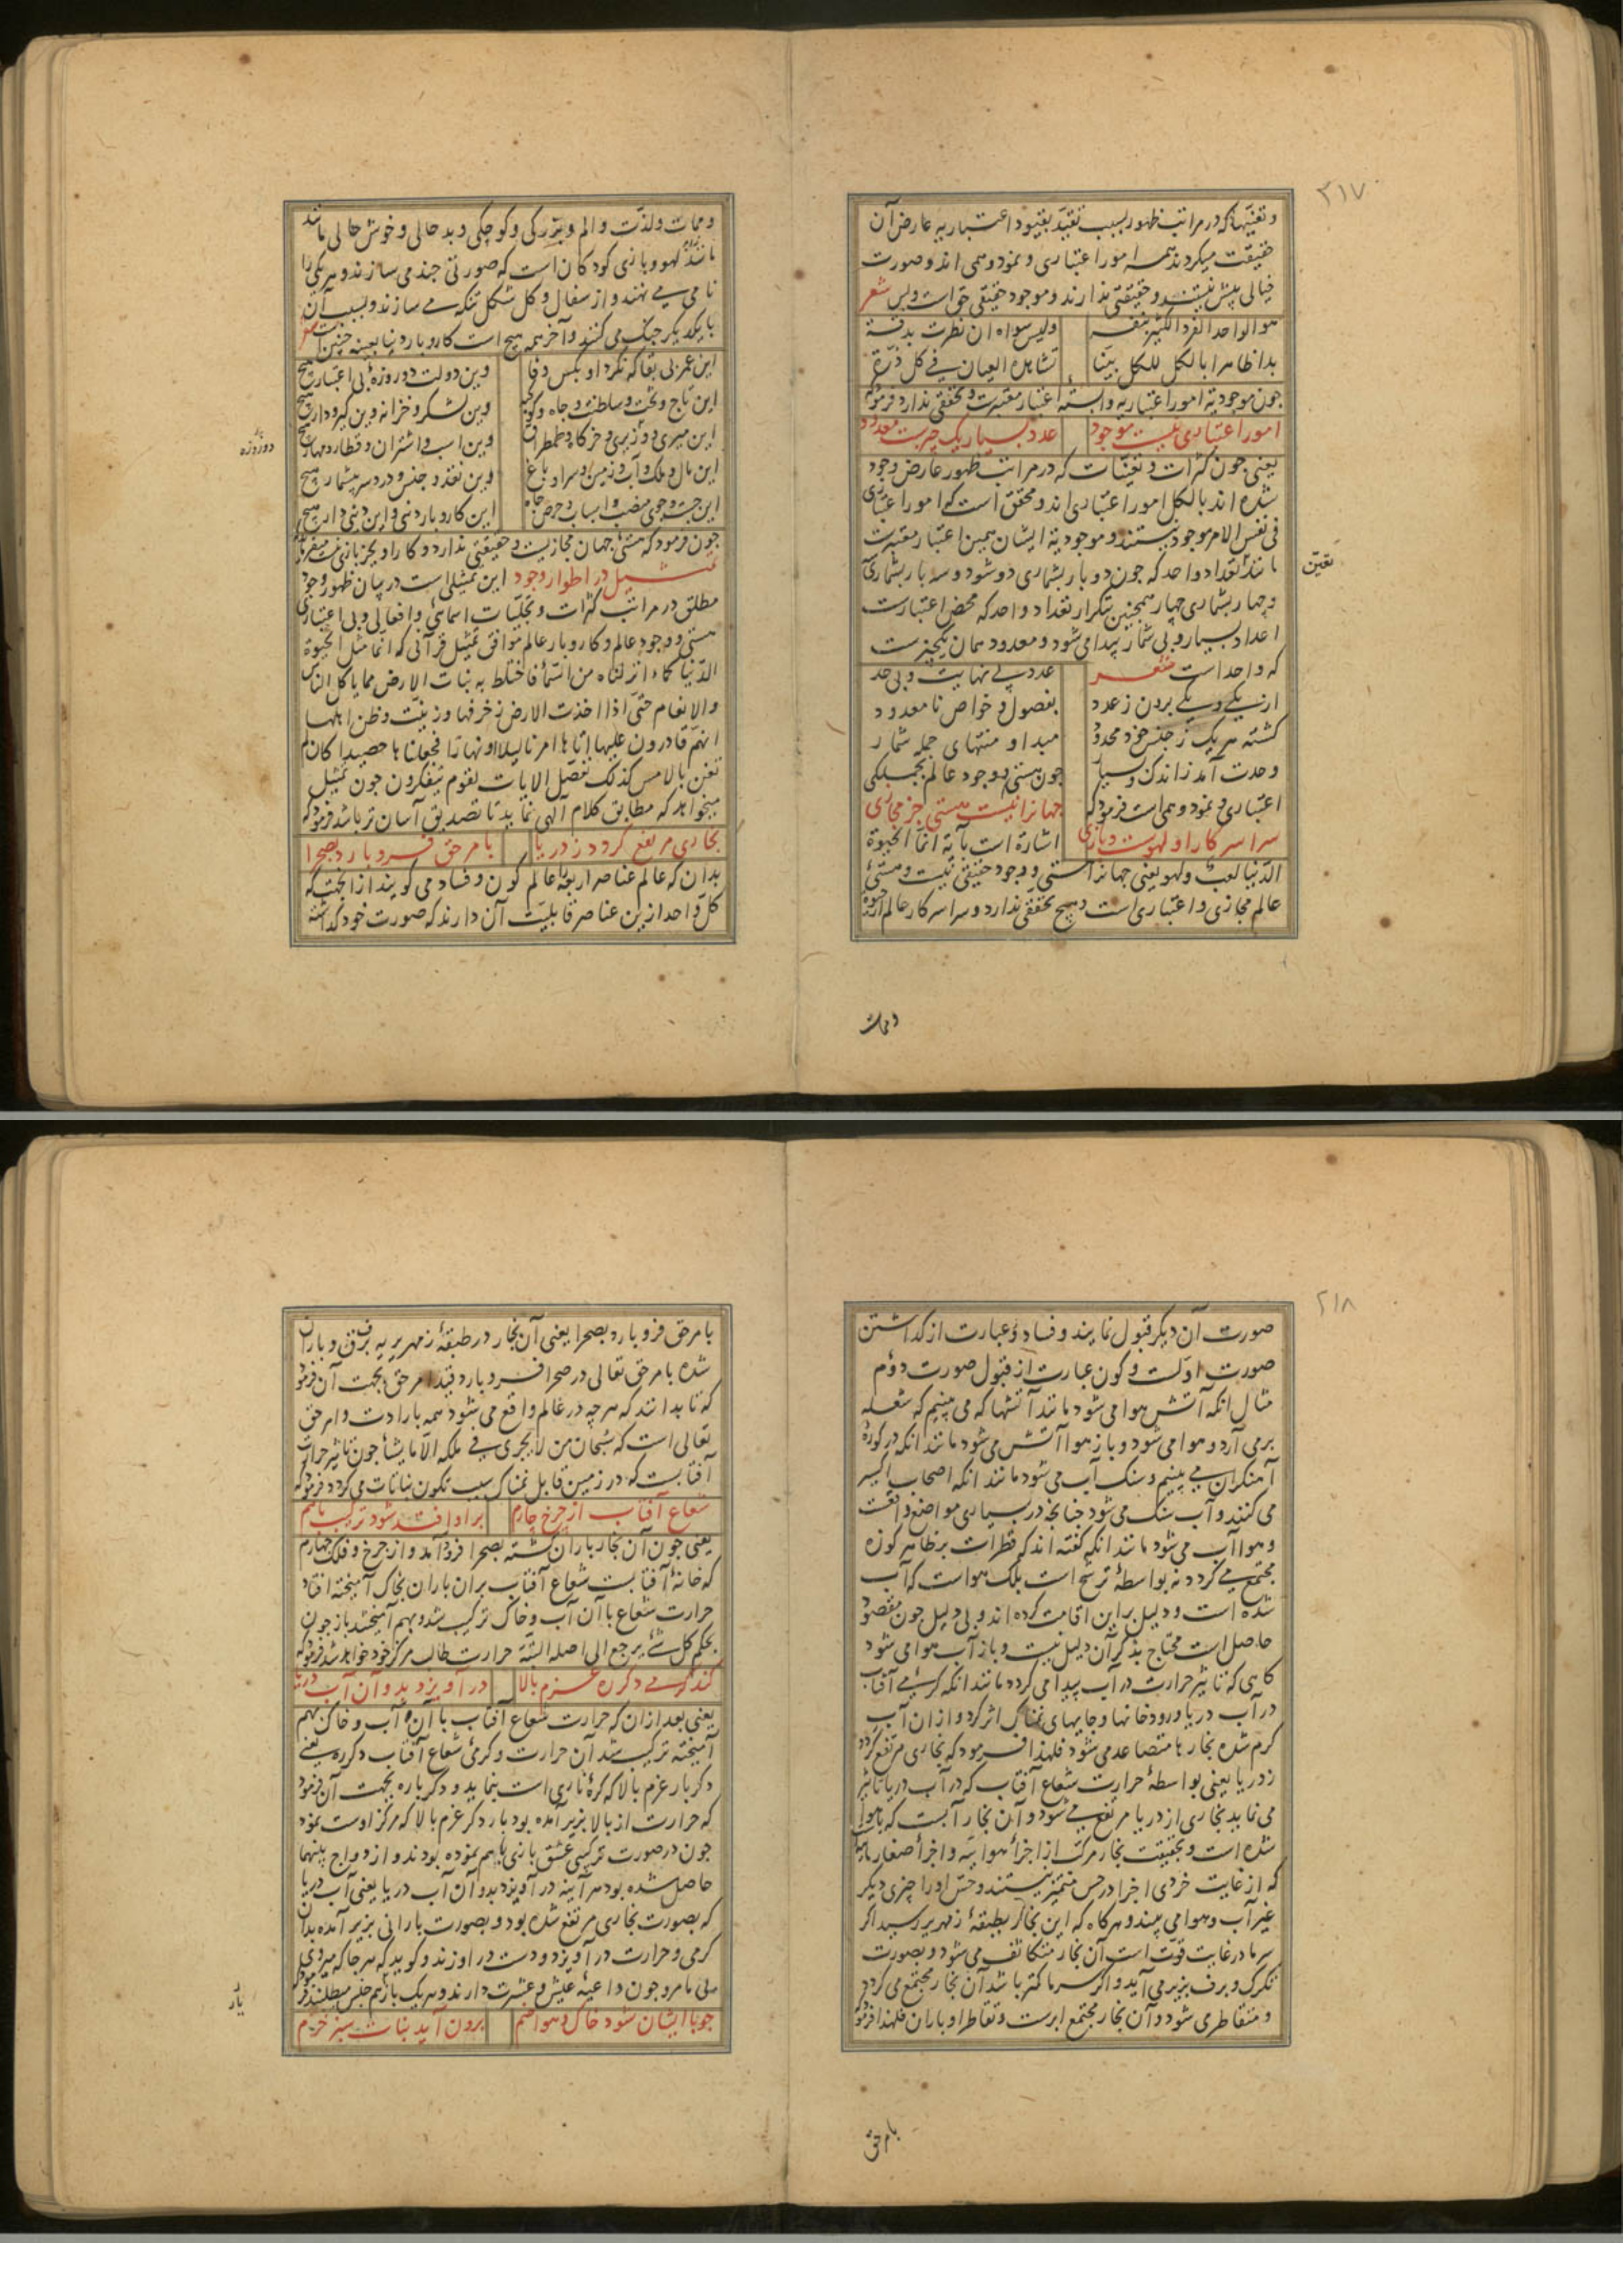 ۲۱۷
و تعینها که در مراتب ظهور بسبب تقید بقیود اعتباریه عارض آن
حقیقت میکردند همه امور اعتباری و نمود وهمی اند و صورت
خیالی بیش نیستند و حقیقتی ندارند و موجود حقیقی حق است و بس شعر
هو الواحد الفرد الکثیر بنفسه ولیس سواه ان نظرت بدقة
بدا ظاهرا بالکل للکل بینا تشاهده العیان فی کل ذرة
جون موجودیة امور اعتباریه وابسته اعتبار معتبرست و تحققی ندارد فرمود که
امور اعتباری نیست موجود عدد بسیار یک چیزست معدود
یعنی جون کثرات و تعینات که در مراتب ظهور عارض وجود
شده اند بالکل امور اعتباری اند و محقق است که امور اعتباری
فی نفس الامر موجود نیستند و موجودیة ایشان همین اعتبار معتبرست
مانند تعداد واحد که جون دو بار بشماری دو شود و سه بار بشماری
تعین
و چهار بشماری چهار همچنین بتکرار تعداد واحد که محض اعتبارست
اعداد بسیار و بی شمار پیدا می شود و معدود همان یکچیزست
که واحد است شعر عدد بی نهایت و بی حد
از یکی و یکی بردن ز عدد بفصول و خواص نا معدود
کشته هر یک ز جنس خود محدود مبداء و منتهای جمله شمار
وحدت آمد ز اندک و بسیار جون هستی و وجود عالم بجملکی
اعتباری و نمود وهمی است فرمود که جهانرا نیست هستی جز مجازی
سراسر کار او لهوست و بازی اشارة است بآیة انما الحیوة
الدنیا لعب و لهو یعنی جهانرا هستی و وجود حقیقی نیست و هستی
عالم مجازی و اعتباری است و هیچ تحققی ندارد و سراسر کار عالم از حیوة
و ممات
و ممات و لذت و الم و بزرکی و کوچکی و بد حالی و خوش حالی مانند
مانند لهو و بازی کودکان است که صورتی چند می سازند و هر یکی را
نامی می نهند و از سفال و کل شکل تنکه می سازند و بسبب آن
با یکدیکر جنک می کنند و آخر همه هیچ است کار و بار دنیا بعینه چنین است شعر
این عمر بی بقا که نکرد او بکس وفا وین دولت دو روزۀ بی اعتبار هیچ
این تاج و تخت و سلطنت و جاه و کوکبه وین لشکر و خزانه و این کیر و دار هیچ
این میری و وزیری و خرکاه و طمطراق وین اسب و اشتران و قطار و مهار هیچ
دو روزه
این مال و ملک و آب و زمین و سرا و باغ وین نقد و جنس و درد سر بیشمار هیچ
این جست و جوی منصب و اسباب و حرص جاه این کار و بار دنی و این دنی دار هیچ
جون فرمود که هستی جهان مجازیست و حقیقتی ندارد و کار او بجز بازی نیست میفرماید
تمثیل در اطوار وجود این تمثیلی است در بیان ظهور وجود
مطلق در مراتب کثرات و تجلیات اسمائی و افعالی و بی اعتباری
هستی و وجود عالم و کار و بار عالم موافق تمثیل قرآنی که انما مثل الحیوة
الدنیا کماء انزلناه من السماء فاختلط به نبات الارض مما یاکل الناس
والانعام حتی اذا اخذت الارض زخرفها وازینت وظن اهلها
انهم قادرون علیها اتاها امرنا لیلا او نهارا فجعلناها حصیدا کان لم
تغن بالامس کذلک نفصل الآیات لقوم یتفکرون جون تمثیل
میخواهد که مطابق کلام الهی نماید تا تصدیق آسان تر باشد فرمود که
بخاری مرتفع کردد ز دریا بامر حق فرو بارد بصحرا
بدان که عالم عناصر اربعه را عالم کون و فساد می کویند از انجهت که
کل واحد ازین عناصر قابلیت آن دارند که صورت خود کذاشته
۲۱۸
صورت آن دیکر قبول نمایند و فساد عبارت از کذاشتن
صورت اولست و کون عبارت از قبول صورت دوم
مثال انکه آتش هوا می شود مانند آتشها که می بینیم که شعله
بر می آرد و هوا می شود و باز هوا آتش می شود مانند انکه در کورۀ
آهنکران می بینیم و سنک آب می شود مانند انکه اصحاب اکسیر
می کنند و آب سنک می شود چنانچه در بسیاری مواضع واقعست
و هوا آب می شود مانند انکه کفته اند که قطرات بر ظاهر کوزه
مجتمع می کردد نه بواسطۀ ترشح است بلکه هواست که آب
شده است و دلیل بر این اقامت کرده اند و بی دلیل جون مقصود
حاصل است محتاج بذکر آن دلیل نیست و باز آب هوا می شود
کاهی که تاثیر حرارت در آب پیدا می کردد مانند انکه کرمی آفتاب
در آب دریا و رودخانها و جایهای نمناک اثر کرد و از ان آب
کرم شده بخارها متصاعد می شود فلهذا فرمود که بخاری مرتفع کردد
ز دریا یعنی بواسطۀ حرارت شعاع آفتاب که در آب دریا تاثیر
می نماید بخاری از دریا مرتفع می شود و آن بخار آبست که با هوا
شده است و بحقیقت بخار مرکب از اجزاء هوائیه و اجزاء صغار مائیه
که از غایت خردی اجزا در حس متمیز نیستند و حس او را چیزی دیکر
غیر آب و هوا می بیند و هر کاه که این بخار بطبقۀ زمهریر رسید اکر
سرما در غایت قوت است آن بخار متکاثف می شود و بصورت
تکرک و برف بزیر می آید و اکر سرما کمتر باشد آن بخار مجتمع می کردد
و متقاطر می شود و آن بخار مجتمع ابرست و تقاطر او باران فلهذا فرمود
بامر حق
بامر حق فرو بارد بصحرا یعنی آن بخار در طبقۀ زمهریریه برف و باران
شده بامر حق تعالی در صحرا فرو بارد قید امر حق بجهت آن فرمود
که تا بدانند که هر چه در عالم واقع می شود همه بارادت و امر حق
تعالی است که سبحان من لا یجری فی ملکه الا ما یشاء جون تاثیر حرارت
آفتابست که در زمین قابل نمناک سبب تکون نباتات می کردد فرمود که
شعاع آفتاب از چرخ چارم براو افتد شود ترکیب باهم
یعنی جون آن بخار باران کشته بصحرا فرود آمد و از چرخ و فلک چهارم
که خانۀ آفتابست شعاع آفتاب بران باران بخاک آمیخته افتاد
حرارت شعاع با آن آب و خاک ترکیب شد و بهم آمیختند باز جون
بحکم کل شئ یرجع الی اصله البته حرارت طالب مرکز خود خواهد شد فرمود که
کند کرمی دکر ره عزم بالا در آویزد بدو آن آب دریا
یعنی بعد از ان که حرارت شعاع آفتاب با آن آب و خاک بهم
آمیخته ترکیب شد آن حرارت و کرمی شعاع آفتاب دکر ره یعنی
دکر بار عزم بالا که کرۀ ناری است بنماید و دکر باره بجهت آن فرمود
که حرارت از بالا بزیر آمده بود بار دکر عزم بالا که مرکز اوست نمود
جون در صورت ترکیبی عشق بازی باهم نموده بودند و ازدواج بینهما
حاصل شده بود هر آینه در آویزد بدو آن آب دریا یعنی آب دریا
که بصورت بخاری مرتفع شده بود و بصورت بارانی بزیر آمده بدان
کرمی و حرارت در آویزد و دست در او زند و کوید که هر جا که میروی
بی ما مرو جون داعیۀ عیش و عشرت دارند و هر یک باز هم جنس میطلبند فرمود که
یار
جو با ایشان شود خاک و هوا ضم برون آید نبات سبز خرم